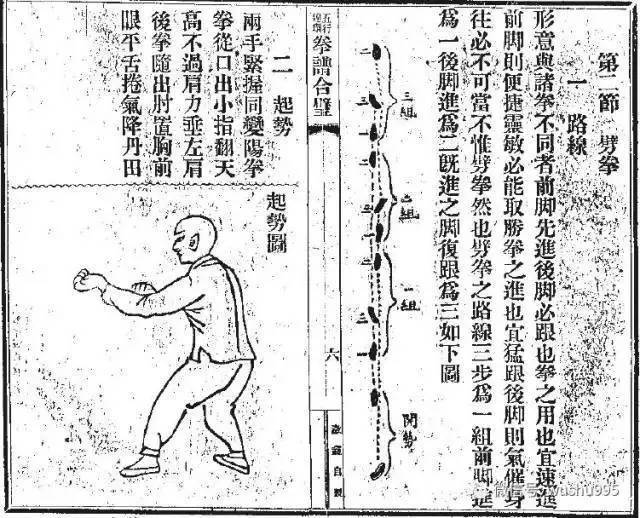 第二節 劈拳
一 路線
形意與諸拳不同者前脚先進後脚必跟也拳之用也宜速進
前脚則便捷靈敏必能取勝拳之進也宜猛跟後脚則氣催身
往必不可當不惟劈拳然也劈拳之路線三步爲一組前脚進
爲一後脚進爲二既進之脚復跟爲三如下圖
三組
二組
一組
開勢
五行連環
拳譜合璧
六
二 起勢
兩手緊握同變陽拳
拳從口出小指翻天
高不過肩力垂左肩
後拳隨出肘置胸前
眼平舌捲氣降丹田
起勢圖
微信号: wushu995